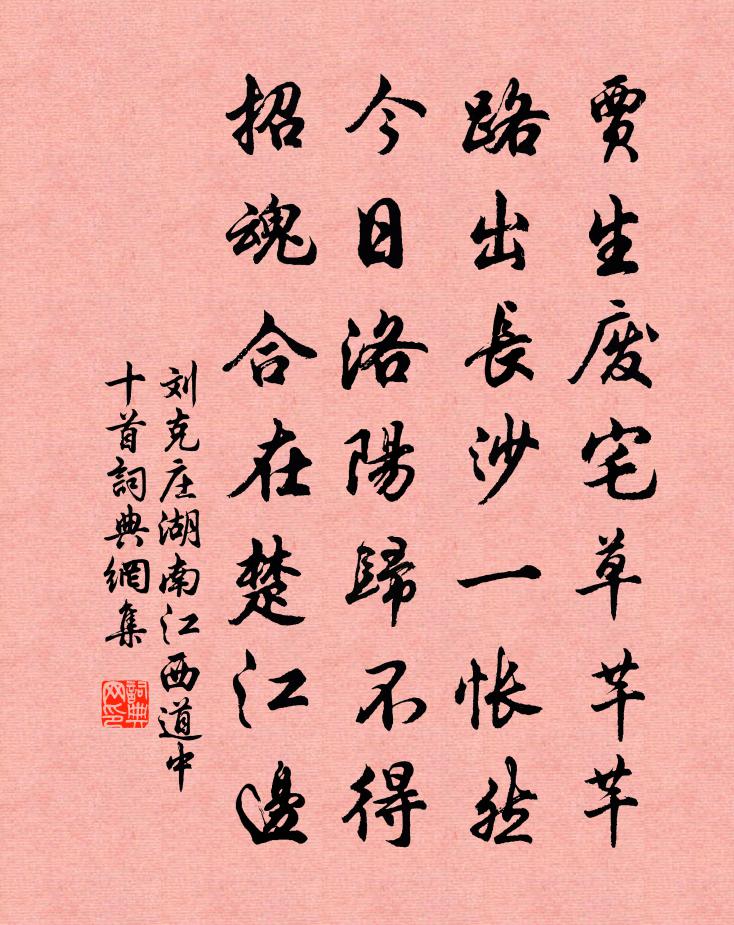 賈生废宅草芊芊
路出長沙一悵然
今日洛陽歸不得
招魂合在楚江邊
刘克庄湖南江西道中
十首詞典網集
詞典网印